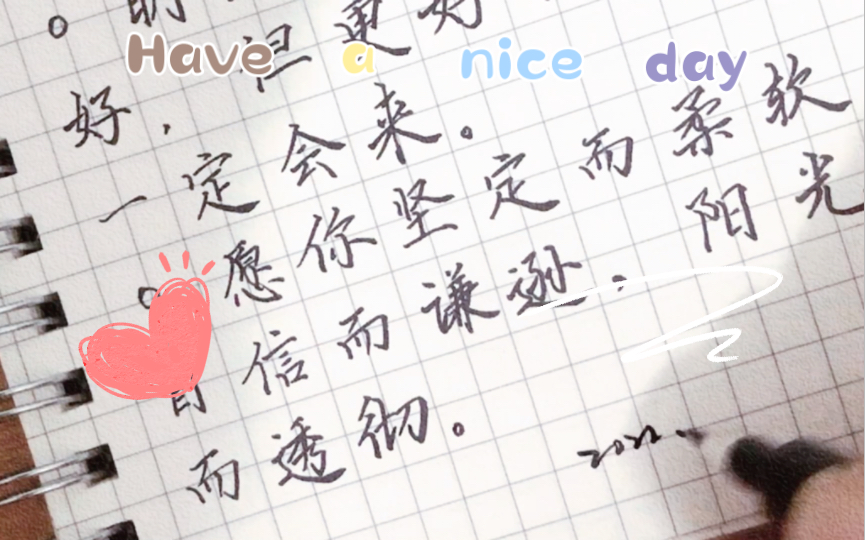 但更好
Have a nice day
好，
一定会来。
愿你坚定而柔软
。自信而谦逊. 阳光
而透彻。
2022.